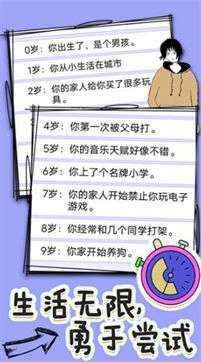 0岁：你出生了，是个男孩。
1岁：你从小生活在城市
2岁：你的家人给你买了很多玩
具。
4岁：你第一次被父母打。
5岁：你的音乐天赋好像不错。
6岁：你上了个名牌小学。
7岁：你的家人开始禁止你玩电子
游戏。
8岁：你经常和几个同学打架。
9岁：你家开始养狗。
生活无限，
勇于尝试